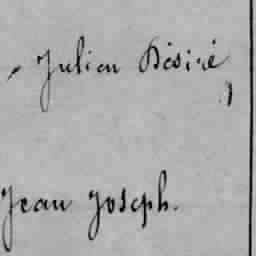 Julien Désiré,
Jean Joseph.